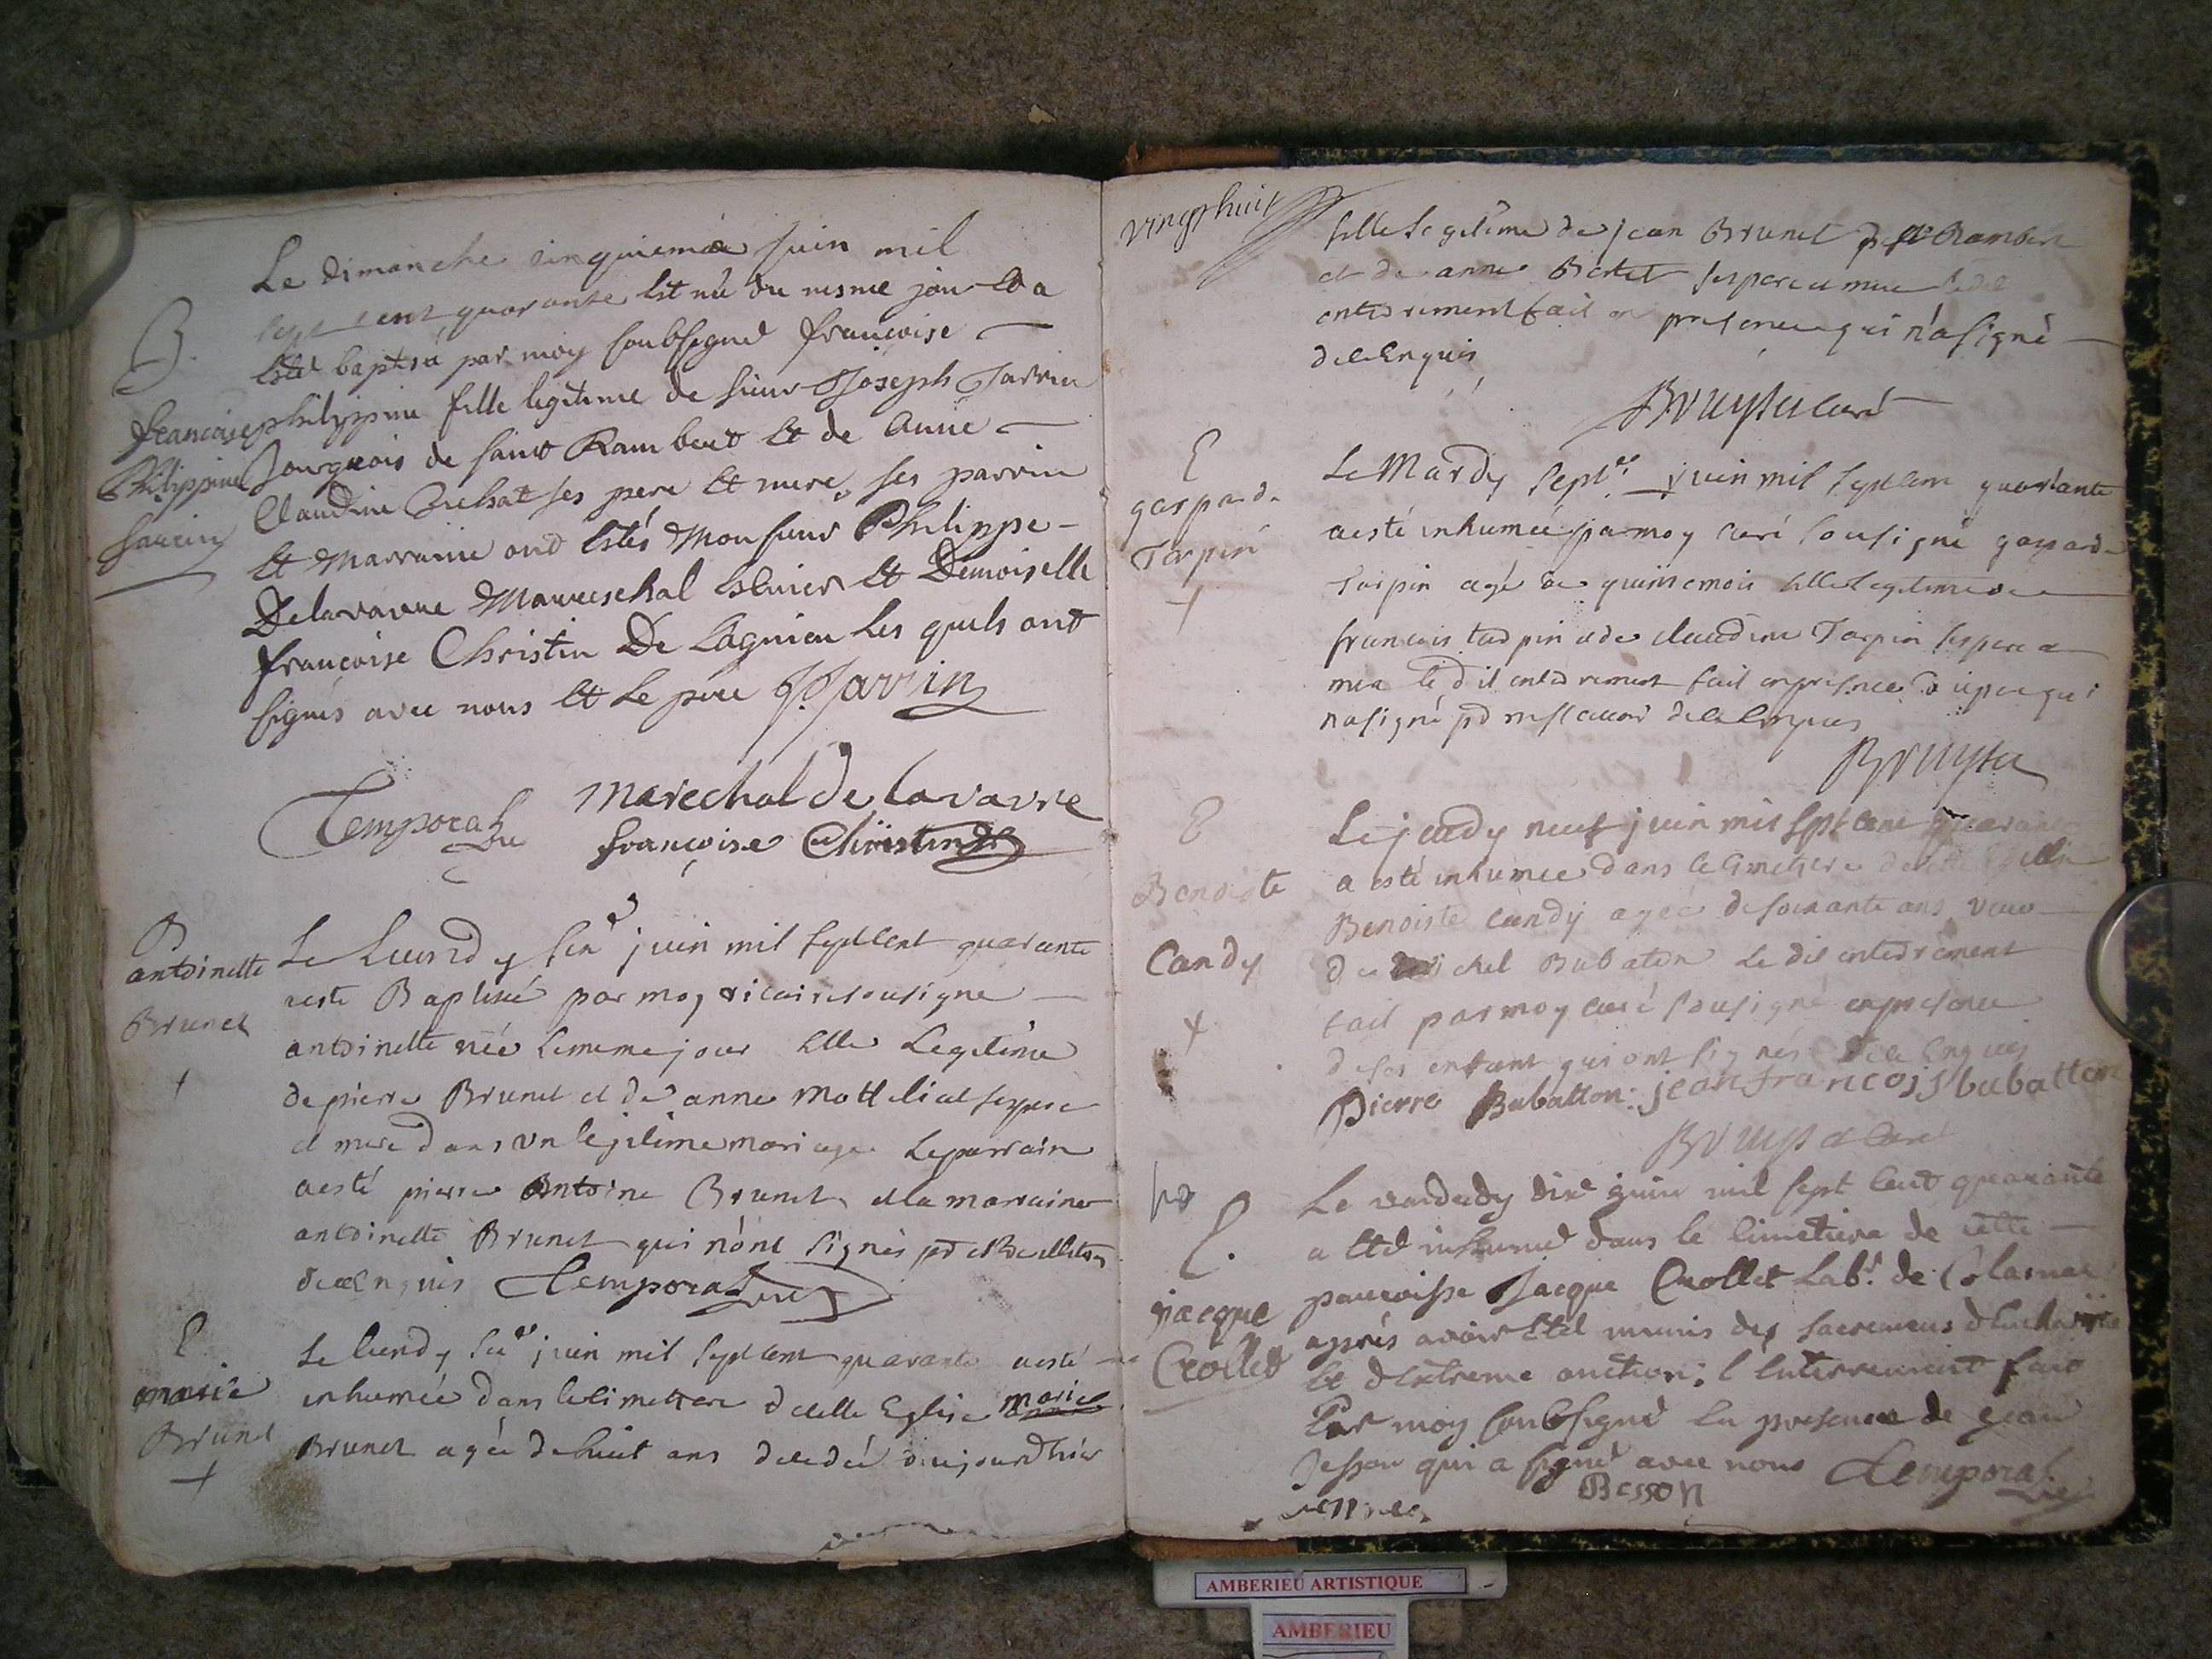 Le dimanche cinquieme juin mil
sept cent quarante Est née du mesme jour Et a
Esté baptisé par moy soubsigné françoise
B.
françoise
Philippine
Jarvin
philippine fille legitime de sieur Joseph Jarvin
Bourgeois de saint Rambert Et de Anne
Claudine ses pere Et mere, ses parrin
Et Marraine ond Estés Monsieur Philippe
Delavavre Mareschal Et Demoiselle
françoise Christin De Lagnieu Les quels ont
signés avec nous Et Le pere J Jarvin
Temporal vic marechal de Lavavre
françoise Christin
B
antoinette
Brunet
+
Le Lundy six juin mil sept cent quarante
a esté Baptisé par moy vicaire sousigné
antoinette née le meme jour fille Legitime
de pierre Brunet et de anne ses pere
et mere dans un legitime mariage Le parrain
a esté pierre Antoine Brunet et la marraine
antoinette Brunet qui n'ont signés
de ce Enquis Temporal vic
E
marie
Brunet
+
Le lundy six juin mil sept cent quarante a esté
inhumée dans le cimettere de cette Eglise marie
Brunet agée de huit ans decedée aujourdhuy
vingt huit
fille Legitime de jean Brunet de st Rambert
et de anne ses pere et mere le dit
enterement fait en presence qui n'a signé
de ce Enquis
Bruyset curé
E
gasparde
Torpin
+
Le Mardy sept juin mil sept cent quarante
a esté inhumée par moy curé sousigné gasparde
Torpin agé de quinse mois fille Legitime de
francois torpin et de claudine Torpin ses pere et
mere le dit enterement fait en presence du pere qui
n'a signé de ce Enquis
Bruyset
E
Benoiste
Candy
+
Le jeudy neuf juin mil sept cent quarante
a esté inhumée dans le Cimetiere de cette Eglise
Benoiste candy agée de soixante ans veuve
de michel Babaton Le dit enterrement
fait par moy curé sousigné en presence
de ses enfant qui ont signés de ce Enquis
Pierre Babatton jean francois babatton
Bruyset Curé
E.
jacque
Crollet
Le vendredy dix juin mil sept cent quarante
a Eté inhumé dans le cimetiere de cette
parroisse Jacque Crollet Lab.r de
aprés avoir Eté munis des sacremens d'Eucharistie
Et d'Extreme onction; l'Enterrement fait
Par moy soubsigné En presence de jean
Besson qui a signé avec nous Temporal vic
Besson
AMBERIEU ARTISTIQUE
AMBERIEU